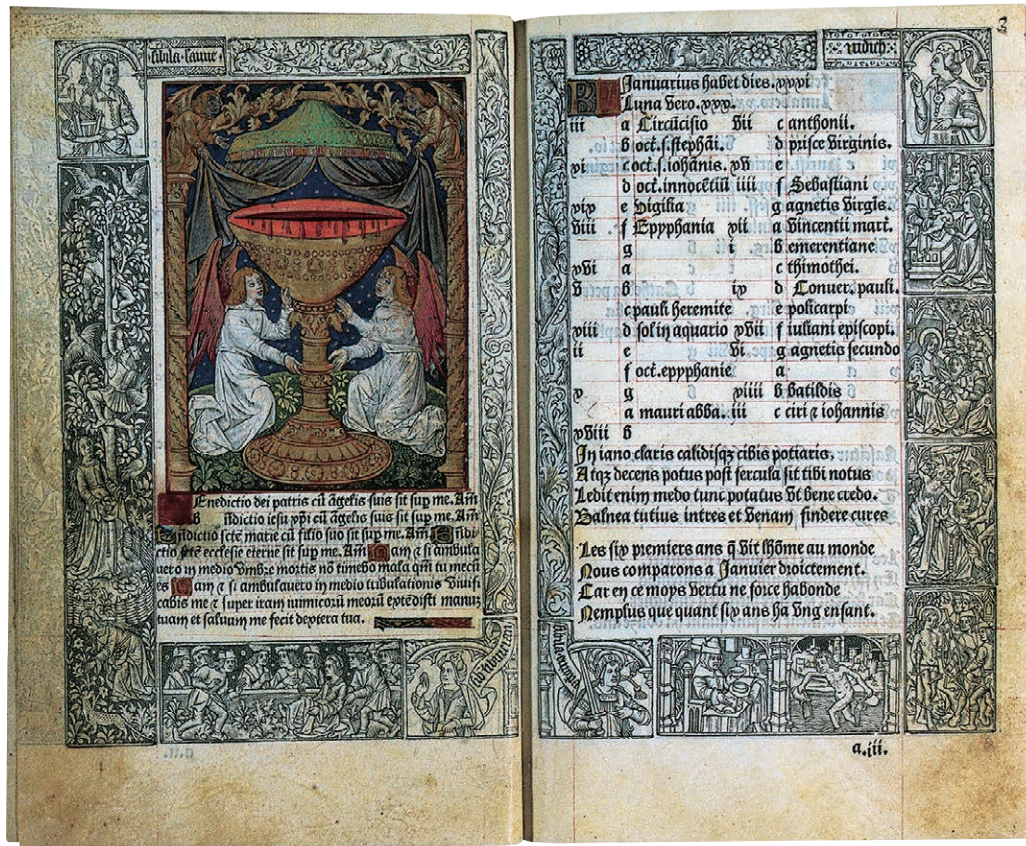 3
Januarius habet dies. xxxi
Luna vero. xxx.
Enedictio dei patris cū āgelis suis sit sup me. Am̄
ndictio iesu xp̄i cū āgelis suis sit sup me. Am̄
ndictio sctē marie cū filio suo sit sup me. Am̄. ndi-
ctio sctē ecclesie eterne sit sup me. Am̄ am ⁊ si ambula
uero in medio vmbre mortis nō timebo mala qm̄ tu mecū
es am ⁊ si ambulauero in medio tribulationis viuifi
cabis me ⁊ super iram inimicorū meorū extēdisti manuz
tuam et saluum me fecit dextera tua.
iii a Circūcisio vii c anthonii.
b oct. s. stephāi. d prisce virginis.
xi c oct. s. iohānis. xv e
d oct. innocētiū iiii f Sebastiani
xix e vigilia g agnetis virgīs.
viii f Epyphania xii a vincentii mart.
g i b emerentiane
xvi a c thimothei.
v b ix d Conuer. pauli.
c pauli heremite e policarpi
xiii d sol in aquario xvii f iuliani episcopi.
ii e vi g agnetis secundo
f oct. epyphanie a
x g xiiii b batildis
a mauri abba. iii c ciri ⁊ iohannis
xviii b
In iano claris calidisqz cibis potiaris,
Atqz decens potus post fercula sit tibi notus
Ledit enim medo tunc potatus vt bene credo.
Balnea tutius intres et venam findere cures
Les six premiers ans q̄ vit lhōme au monde
Nous comparons a Januier droictement.
Car en ce moys vertu ne force habonde
Nemplus que quant six ans ha vng enfant.
a.iii.